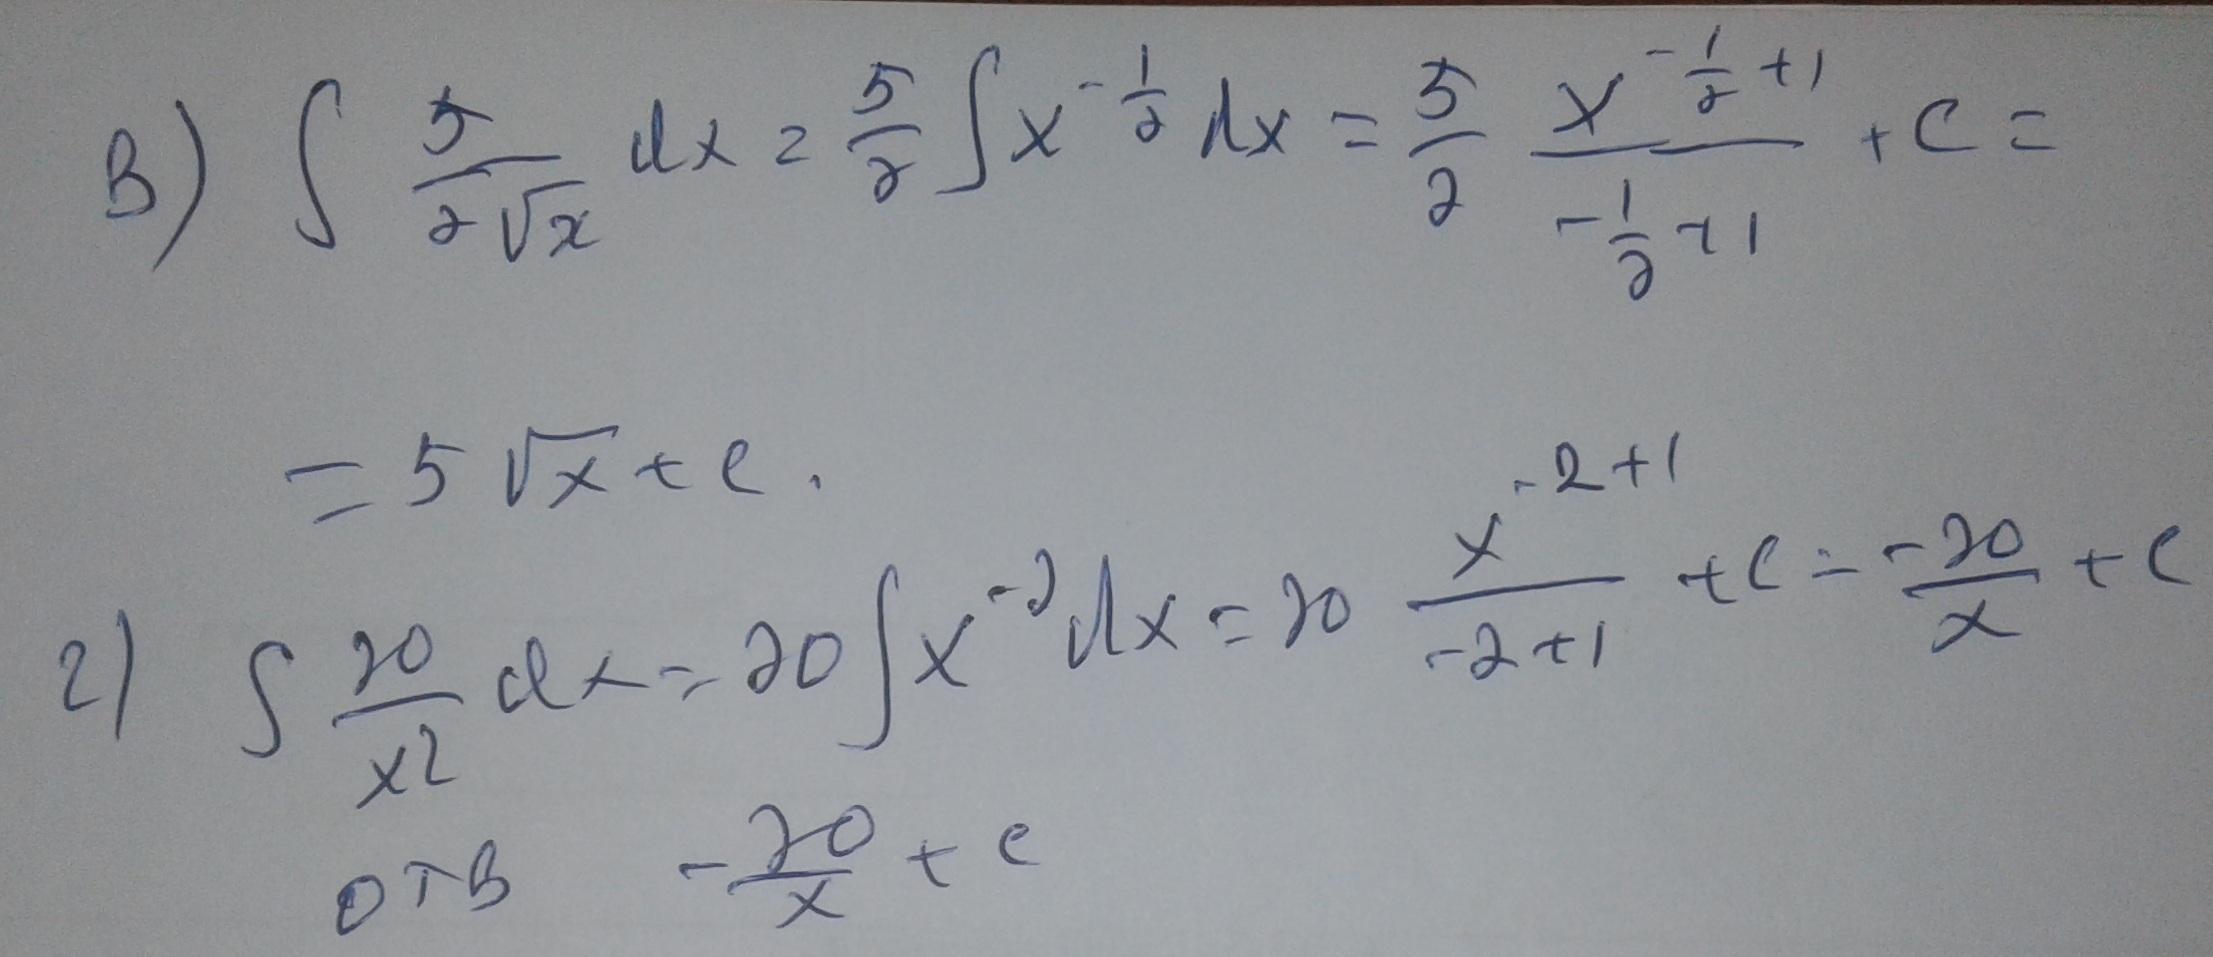 В) ∫ 5/(2√x) dx = 5/2 ∫ x^(-1/2) dx = 5/2 x^(-1/2+1)/(-1/2+1) + C =
= 5√x + C.
2) ∫ 20/x2 dx = 20 ∫ x^(-2) dx = 20 x^(-2+1)/(-2+1) + C = -20/x + C
ОТВ -20/x + C